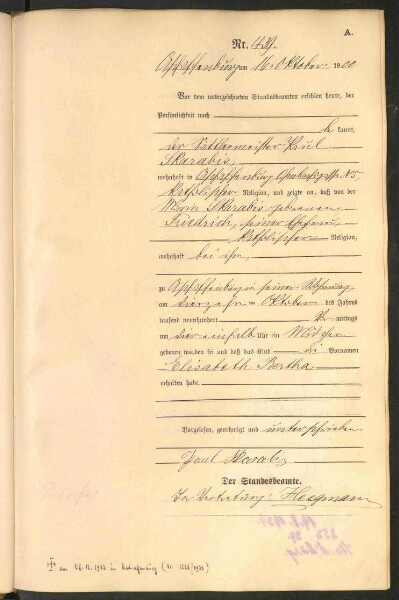 A.
Nr. 439.
Aschaffenburg am 16. Oktober 1900
Vor dem unterzeichneten Standesbeamten erschien heute, der
Persönlichkeit nach
be kannt,
der Sattlermeister Paul
Skarabis,
wohnhaft in Aschaffenburg
katholischer Religion, und zeigte an, daß von der
Maria Skarabis geborenen
Friedrich, seiner Ehefrau,
katholischer Religion,
wohnhaft bei ihm,
zu Aschaffenburg in seiner Wohnung
am vierzehnten Oktober des Jahres
tausend neunhundert mittags
um vier einhalb Uhr ein Mädchen
geboren worden sei und daß das Kind die Vornamen
Elisabeth Bertha
erhalten habe.
Vorgelesen, genehmigt und unterschrieben
Paul Skarabis
Der Standesbeamte.
In Vertretung: